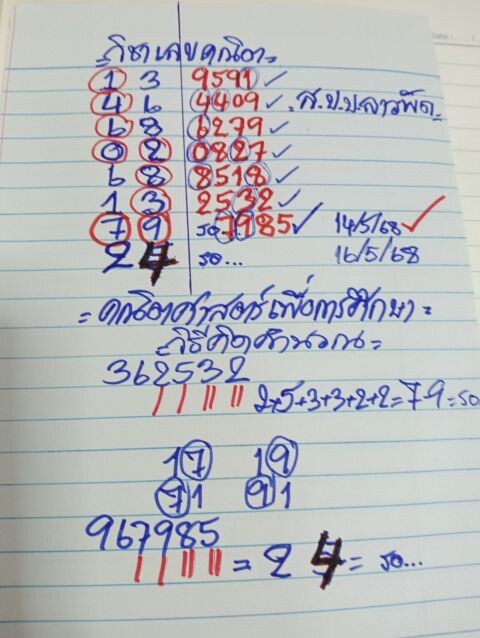 =วิชาเลขคณิต=
1 3 9591 ✓
4 6 4409 ✓ .ส.ป.ป.ลาวพัด=
6 8 6279 ✓
0 2 0827 ✓
6 8 8518 ✓
1 3 2532 ✓
7 9 รอ 7985 ✓ 14/5/68 ✓
2 4 รอ... 16/5/68
=คณิตศาสตร์เพื่อการศึกษา=
=วิธีคิดคำนวณ=
362532
2+5+3+3+2+2=7-9=รอ
17 19
71 91
967985
= 2 4 = รอ...